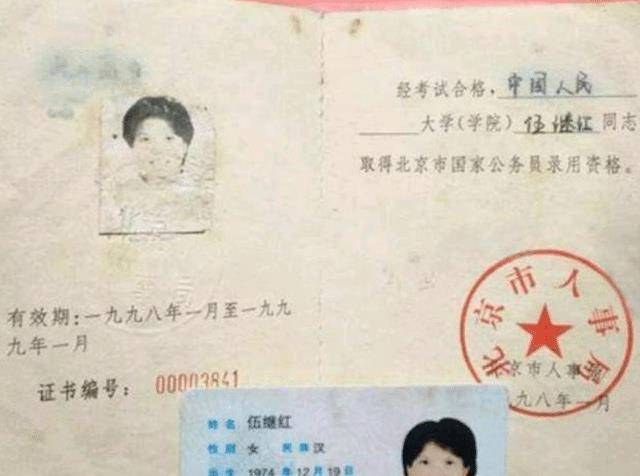 经考试合格，中国人民
大学(学院) 伍继红 同志
取得北京市国家公务员录用资格。
有效期:一九九八年一月至一九九
九年一月
证书编号: 00003841
北京市人事局
京市人事
九八年一月
姓名 伍继红
性别 女 民族 汉
出生 1974 年 12 月 19 日